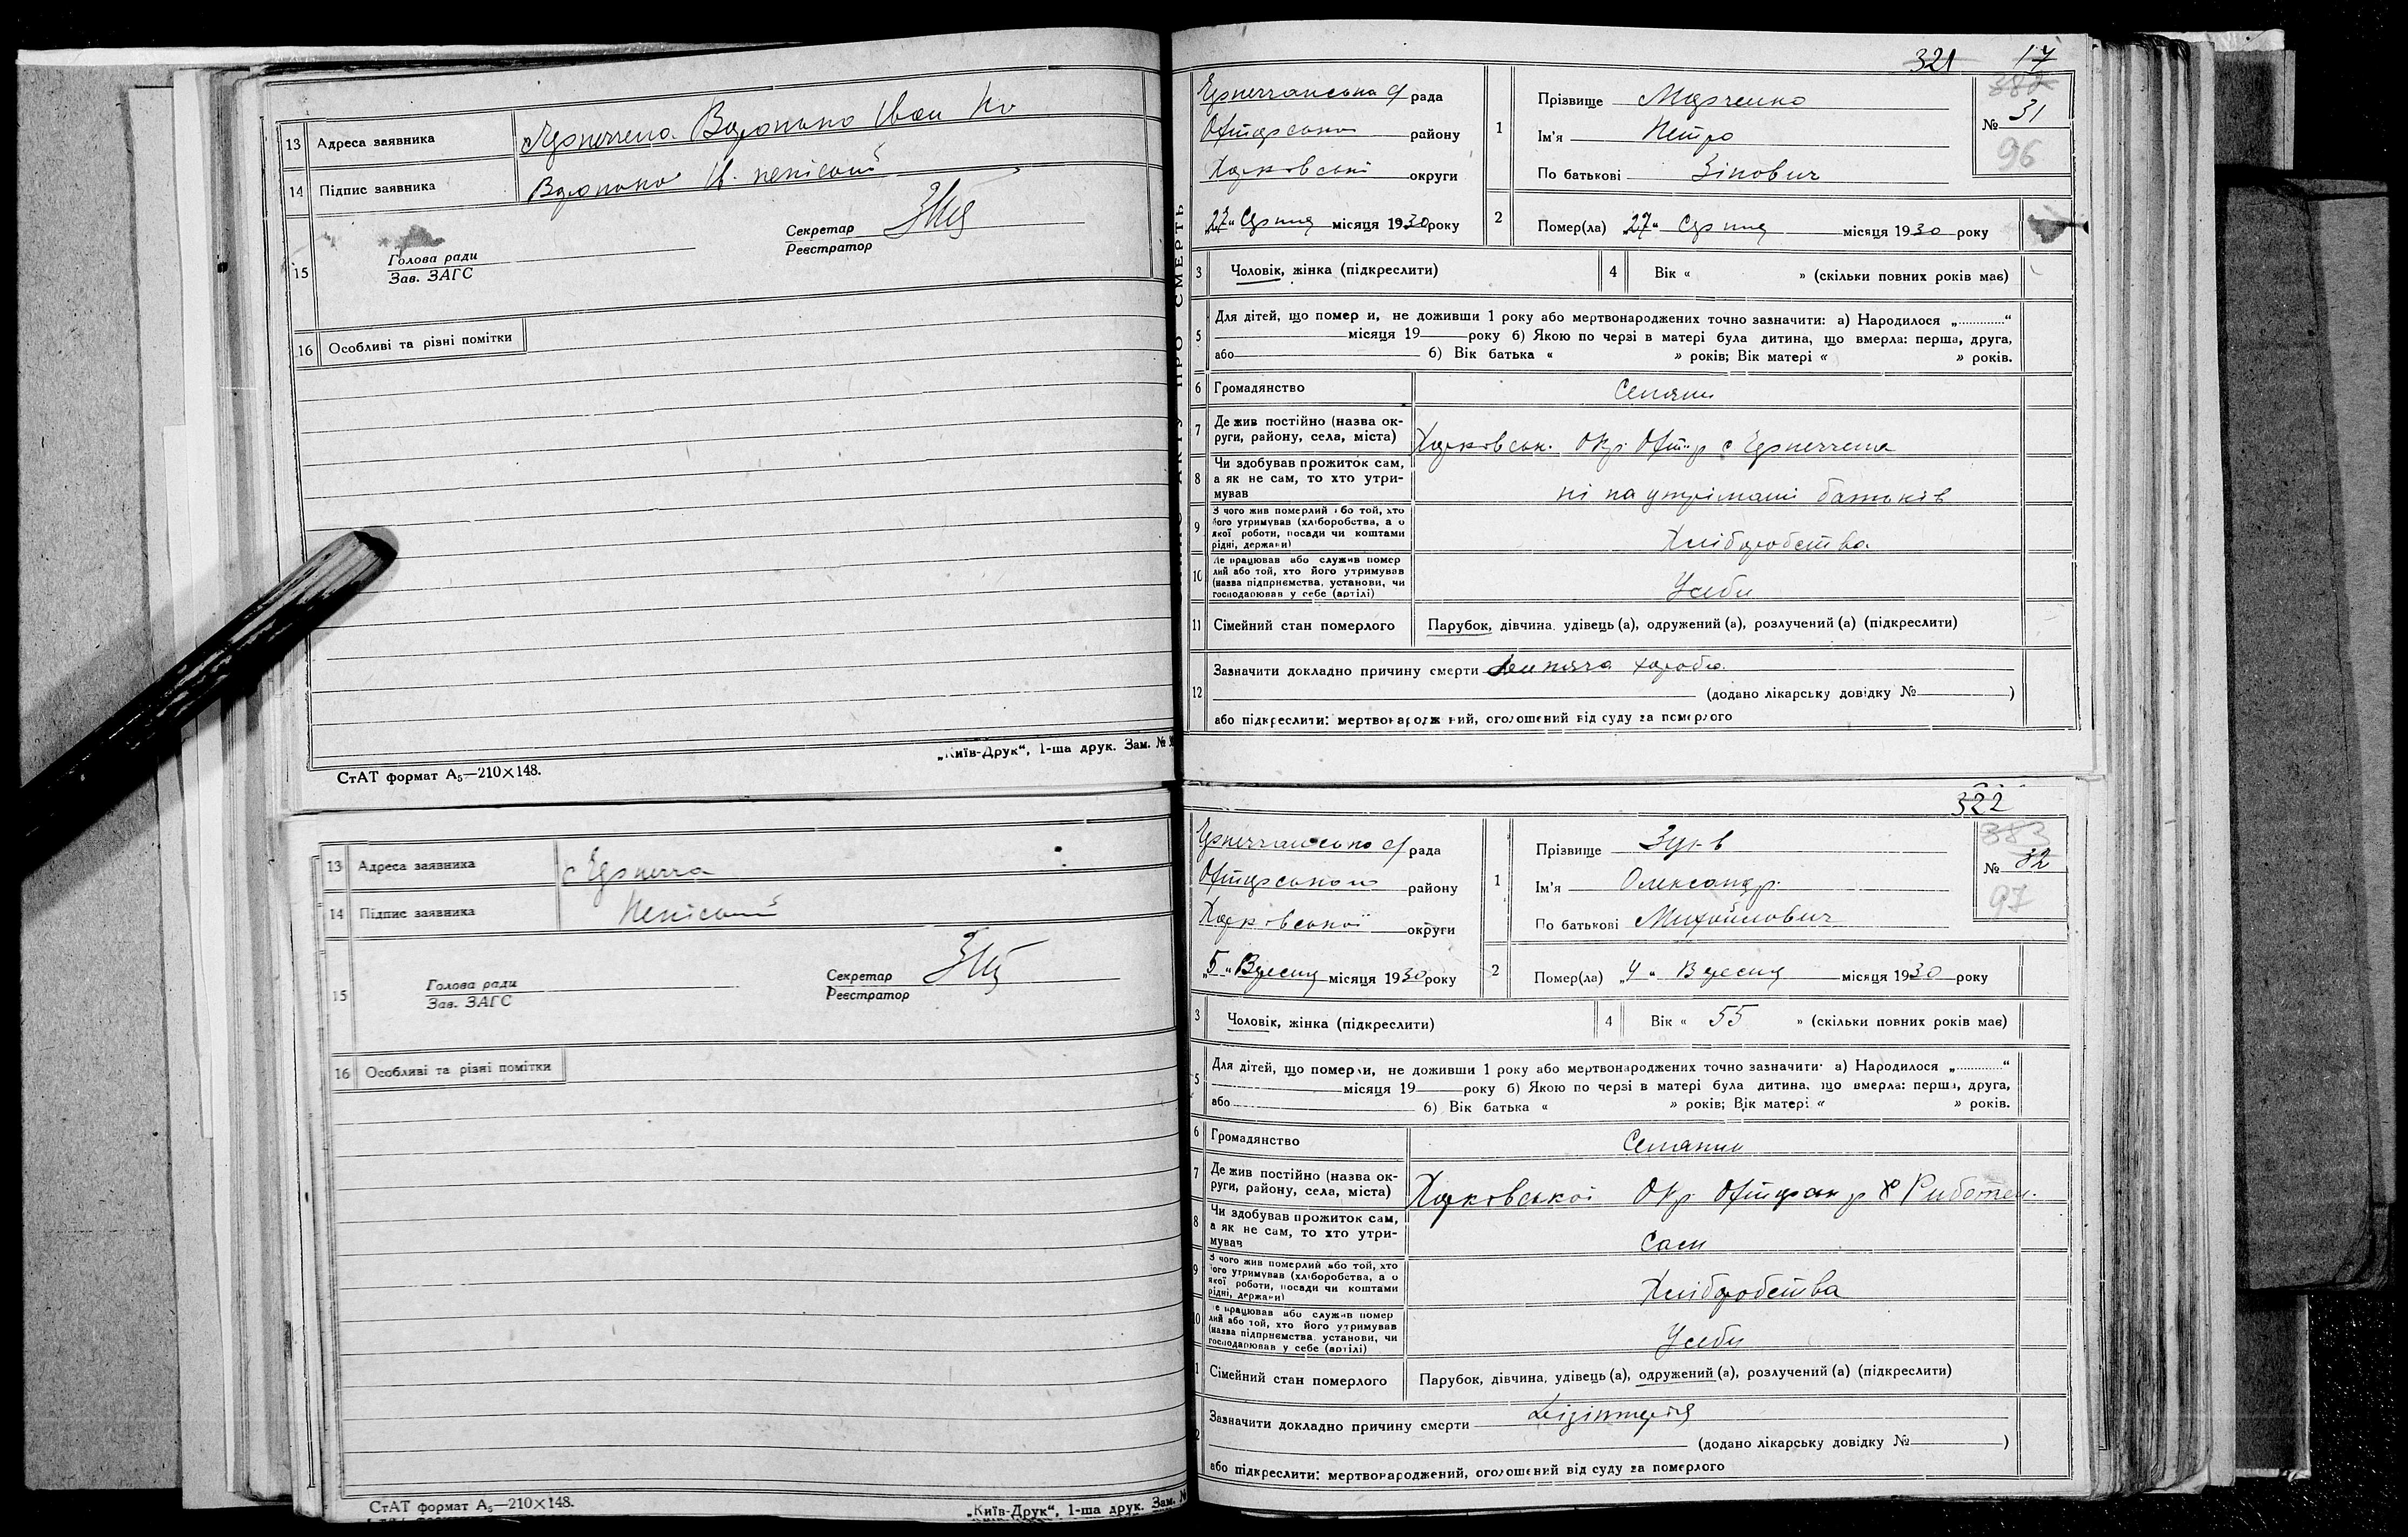 13 Адреса заявника
14 Підпис заявника
Секретар
Реєстратор
15
Голова ради
Зав. ЗАГС
16 Особливі та різні помітки
СтАТ формат А₅—210×148.
„Київ-Друк“, 1-ша друк. Зам. №
13 Адреса заявника
14 Підпис заявника
15
Голова ради
Зав. ЗАГС
Секретар
Реєстратор
16 Особливі та різні помітки
СтАТ формат А₅—210×148.
„Київ-Друк“, 1-ша друк. Зам. №
321 17
рада
району
Харківської округи
„27“ Серпня місяця 1930 року
1 Прізвище Марченко
Ім'я Петро
По батькові Зінович
№ 31
96
2 Помер(ла) „27“ Серпня місяця 1930 року
3 Чоловік, жінка (підкреслити)
4 Вік « » (скільки повних років має)
5 Для дітей, що помер и, не доживши 1 року або мертвонароджених точно зазначити: а) Народилося „............“
місяця 19 року б) Якою по черзі в матері була дитина, що вмерла: перша, друга,
або б) Вік батька « » років; Вік матері « » років.
6 Громадянство Селянин
7 Де жив постійно (назва ок-
руги, району, села, міста)
8 Чи здобував прожиток сам,
а як не сам, то хто утри-
мував
ні на утріманні батьків
9 З чого жив померлий або той, хто
його утримував (хліборобства, а о
якої роботи, посади чи коштами
рідні, держави)
Хліборобства
10 Де працював або служив помер
лий або той, хто його утримував
(назва підприємства, установи, чи
господарював у себе (артілі)
Усебе
11 Сімейний стан померлого Парубок, дівчина, удівець (а), одружений (а), розлучений (а) (підкреслити)
12 Зазначити докладно причину смерти Дитяча хороба
(додано лікарську довідку № )
або підкреслити: мертвонароджений, оголошений від суду за померлого
322
рада
району
Харківської округи
„5“ Вересня місяця 1930 року
1 Прізвище
Ім'я Олександр
По батькові Михайлович
383
№ 32
97
2 Помер(ла) „4“ Вересня місяця 1930 року
3 Чоловік, жінка (підкреслити)
4 Вік « 55 » (скільки повних років має)
5 Для дітей, що померли, не доживши 1 року або мертвонароджених точно зазначити: а) Народилося „............“
місяця 19 року б) Якою по черзі в матері була дитина, що вмерла: перша, друга,
або б) Вік батька « » років; Вік матері « » років.
6 Громадянство Селянин
7 Де жив постійно (назва ок-
руги, району, села, міста)
Харківської Окр.
8 Чи здобував прожиток сам,
а як не сам, то хто утри-
мував
Сам
9 З чого жив померлий або той, хто
його утримував (хліборобства, а о
якої роботи, посади чи коштами
рідні, держави)
Хліборобства
10 Де працював або служив помер
лий або той, хто його утримував
(назва підприємства, установи, чи
господарював у себе (артілі)
Усебе
Сімейний стан померлого Парубок, дівчина, удівець (а), одружений (а), розлучений (а) (підкреслити)
Зазначити докладно причину смерти Дізінтерія
(додано лікарську довідку № )
або підкреслити: мертвонароджений, оголошений від суду за померлого